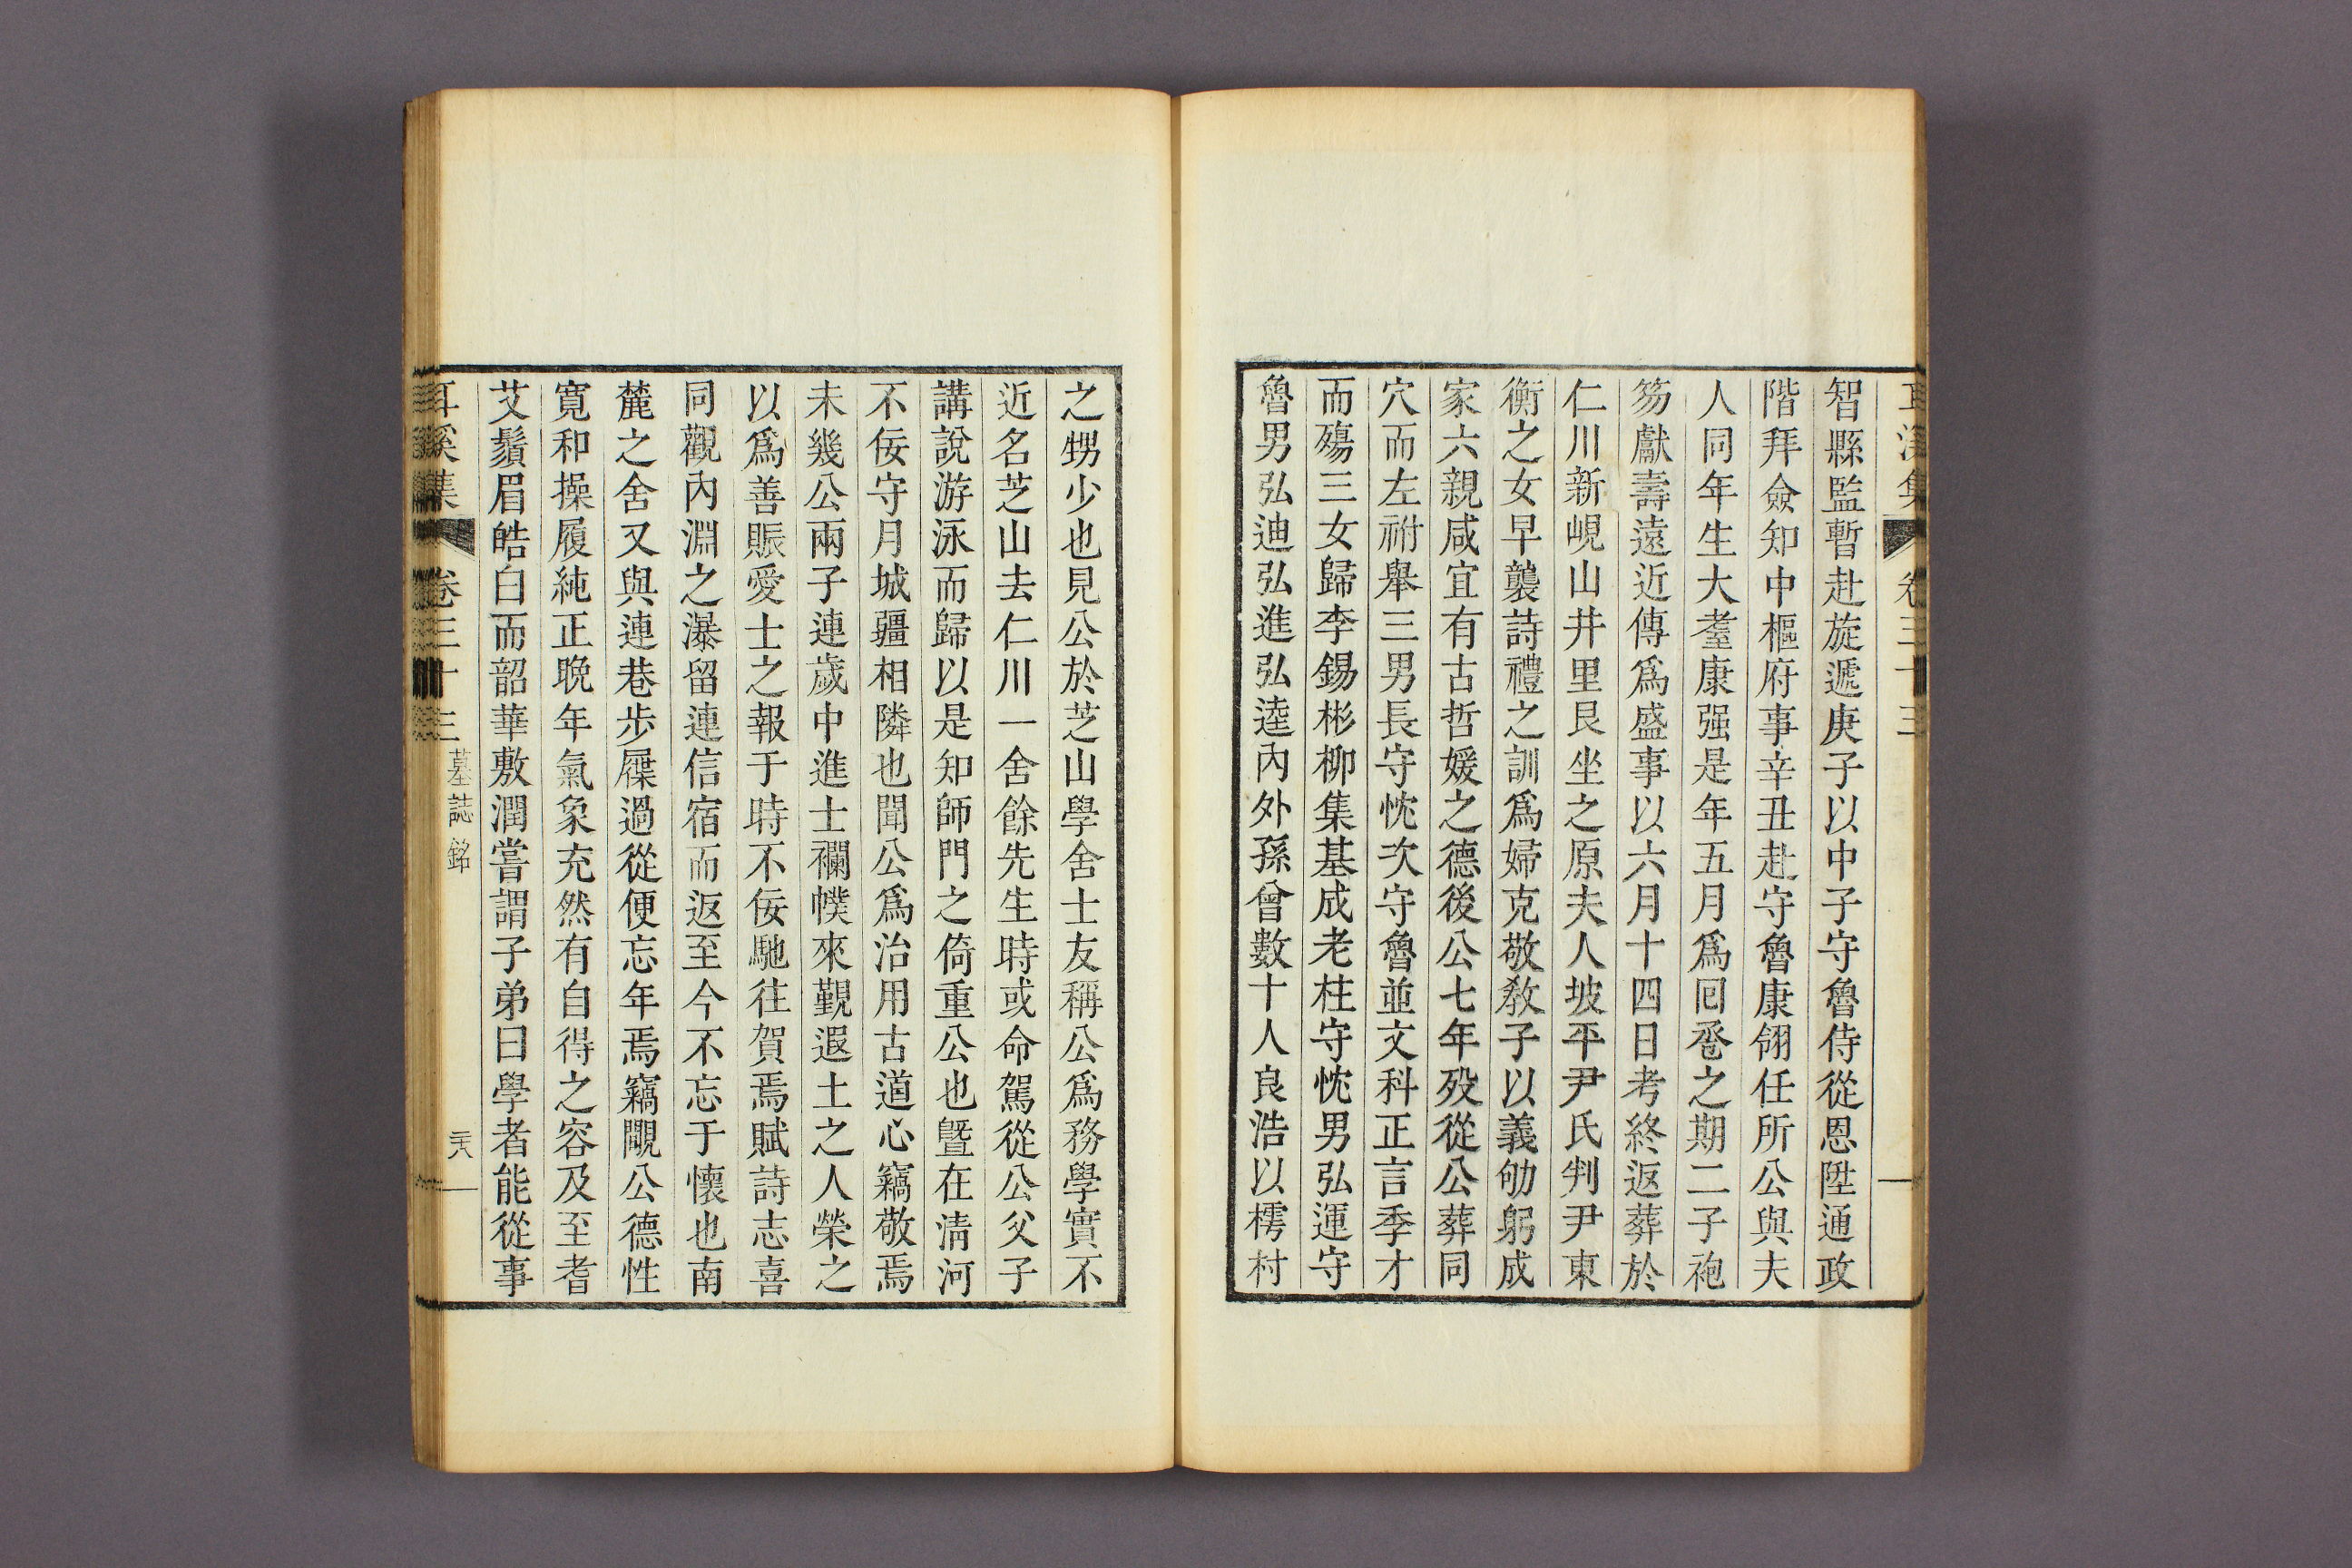 耳溪集 卷三十三
智縣監暫赴旋遞庚子以中子守魯侍從恩陞通政
階拜僉知中樞府事辛丑赴守魯康翎任所公與夫
人同年生大耋康强是年五月爲囘巹之期二子袍
笏獻壽遠近傳爲盛事以六月十四日考終返葬於
仁川新峴山井里艮坐之原夫人坡平尹氏判尹東
衡之女早襲詩禮之訓爲婦克敬敎子以義劬躬成
家六親咸宜有古哲媛之德後公七年歿從公葬同
穴而左祔舉三男長守忱次守魯並文科正言季才
而殤三女歸李錫彬柳集基成老柱守忱男弘運守
魯男弘迪弘進弘逵內外孫曾數十人良浩以樗村
之甥少也見公於芝山學舍士友稱公爲務學實不
近名芝山去仁川一舍餘先生時或命駕從公父子
講說游泳而歸以是知師門之倚重公也曁在淸河
不佞守月城疆相隣也聞公爲治用古道心竊敬焉
未幾公兩子連歲中進士襴幞來覲遐土之人榮之
以爲善賑愛士之報于時不佞馳往賀焉賦詩志喜
同觀內淵之瀑留連信宿而返至今不忘于懷也南
麓之舍又與連巷步屧過從便忘年焉竊覸公德性
寬和操履純正晚年氣象充然有自得之容及至耆
艾鬚眉皓白而韶華敷潤嘗謂子弟曰學者能從事
耳溪集 卷三十三 墓誌銘 二十八